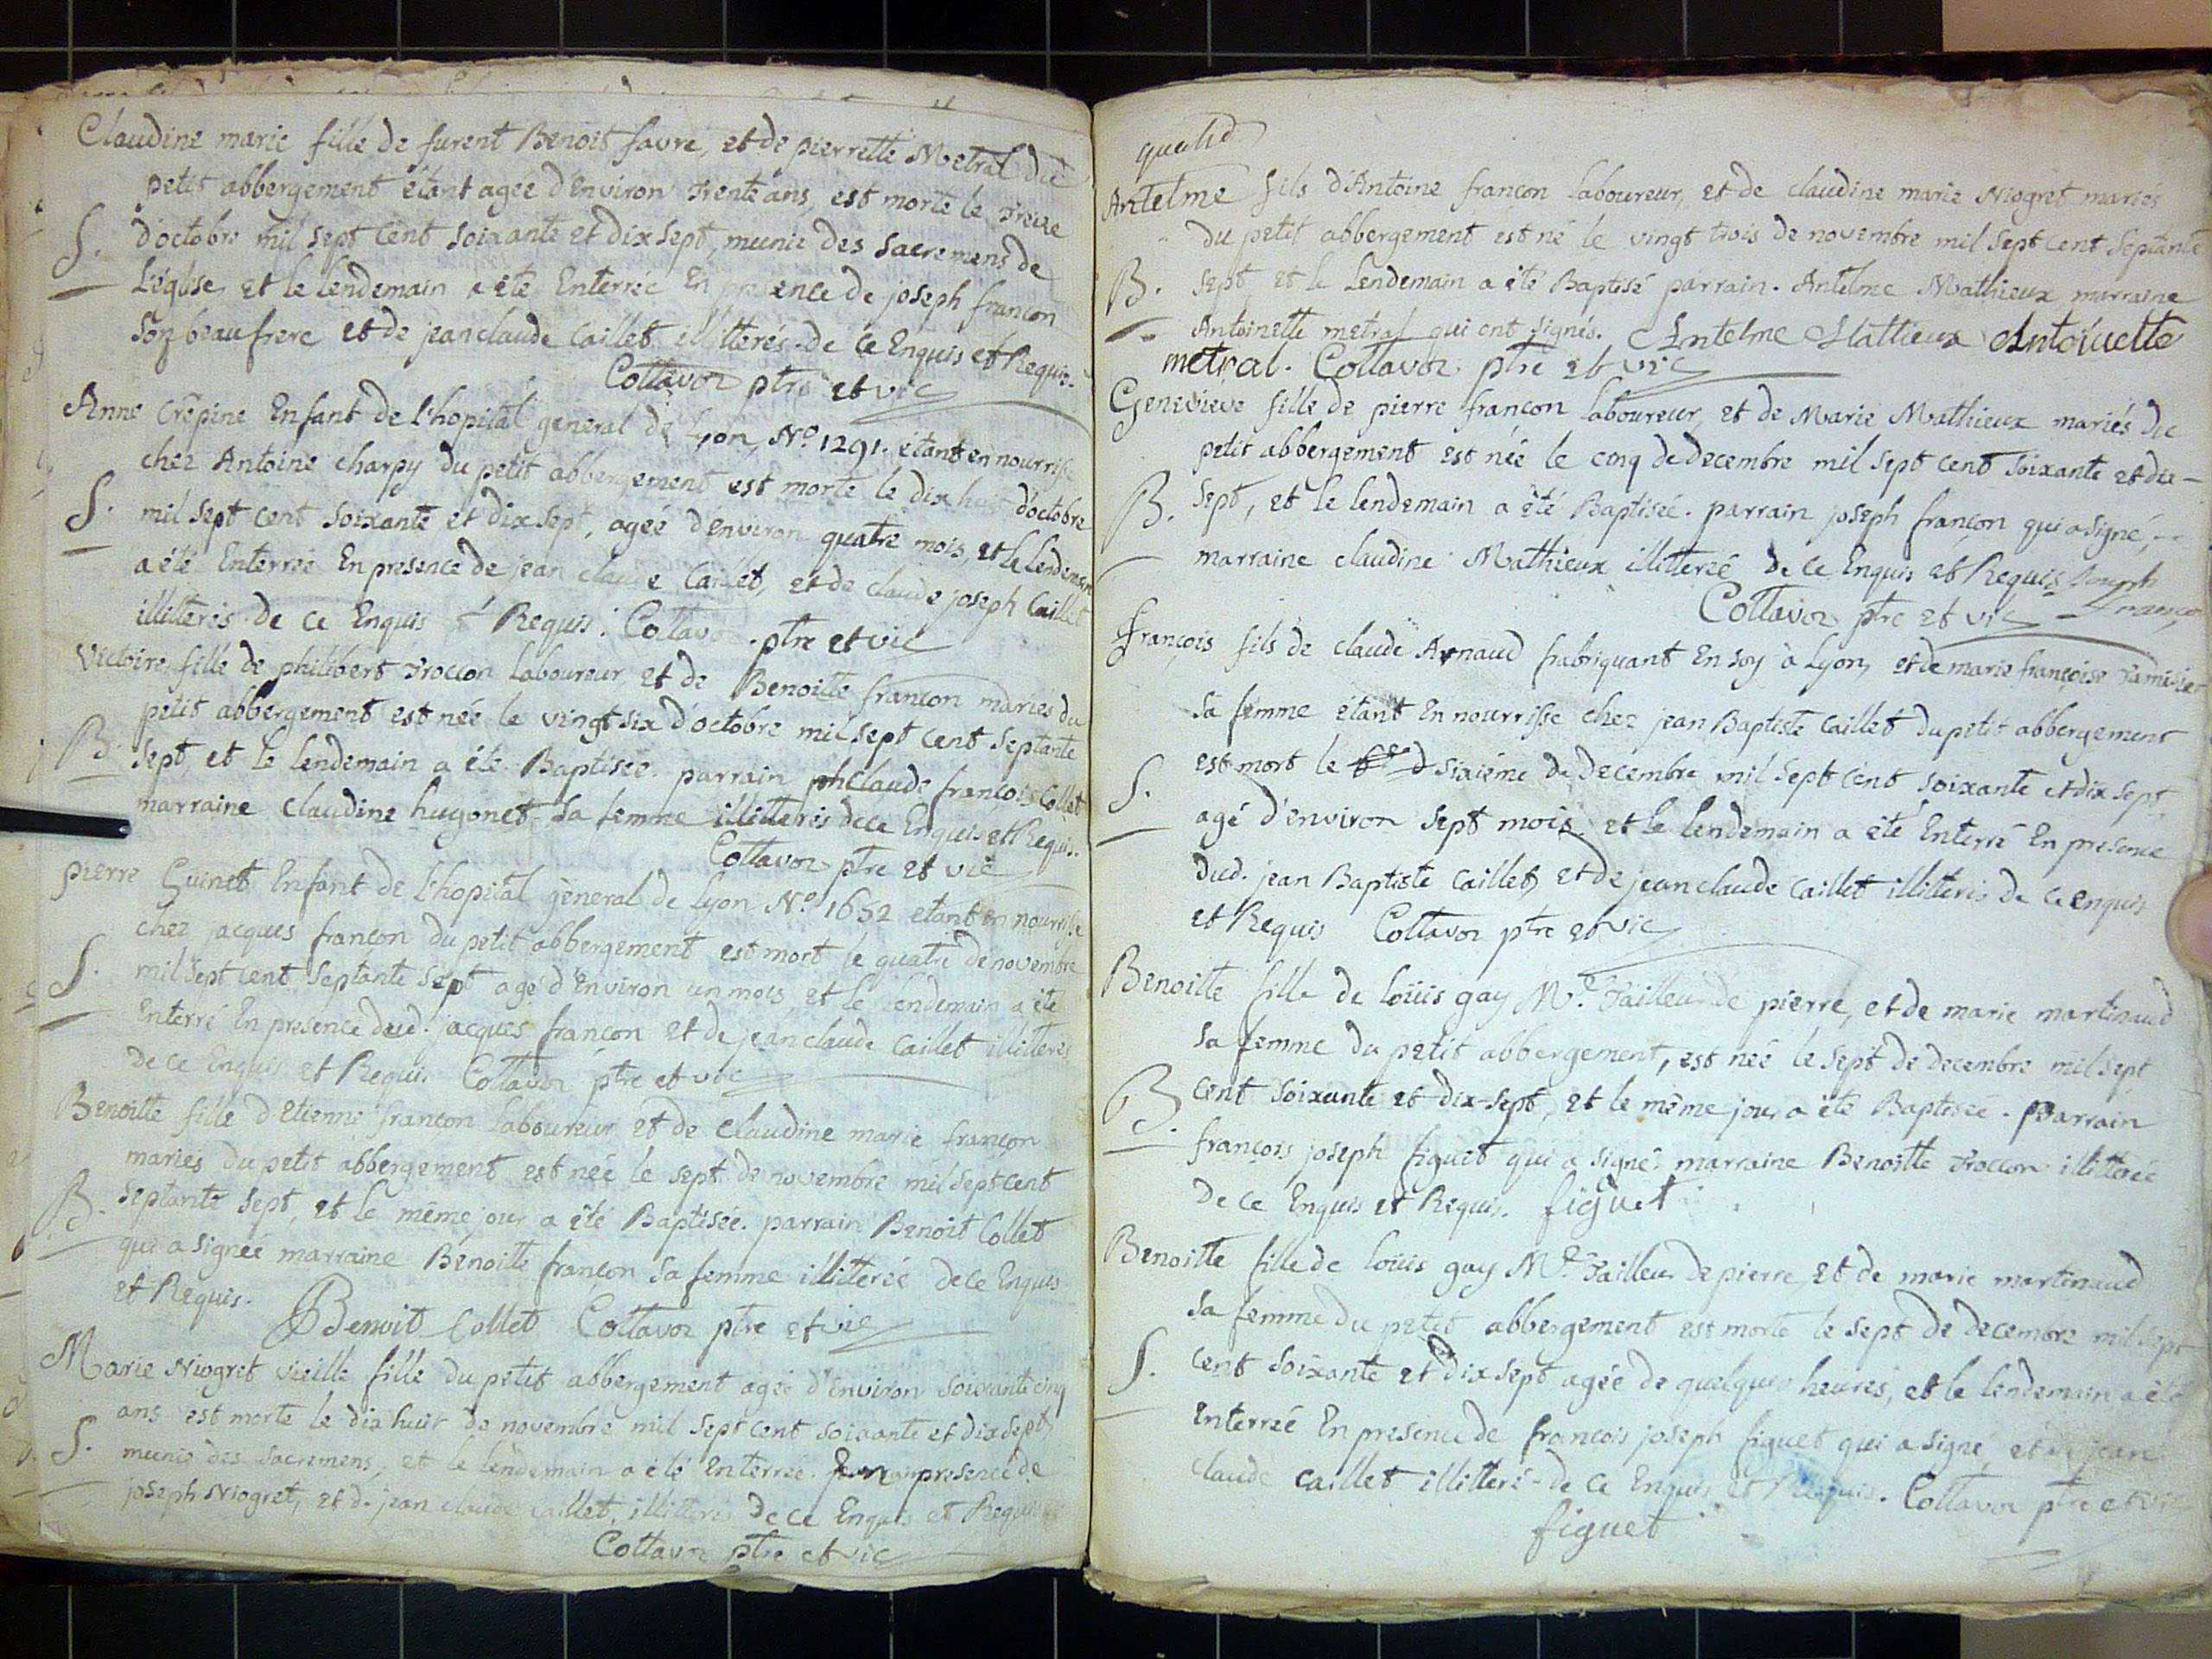 Claudine marie fille de furent Benoit favre, et de pierrette Metral du
petit abbergement étant agée d'Environ Trente ans, est morte le Treize
S. d'octobre mil sept cent soixante et dix sept, munie des sacremens de
L'église, et le lendemain a été Enterrée En presence de joseph françon
son beaufrere et de jean claude Caillet illitterés de ce Enquis et Requis.
Cottavoz ptre et vic
Anne Crêpine Enfant de l'hopital général de Lyon, No. 1291. étant en nourrisse
chez Antoine charpy du petit abbergement est morte le dix huit d'octobre
S. mil sept cent soixante et dix sept, agée d'environ quatre mois, et le lendemain
a été Enterrée En presence de jean claude Caillet, et de claude joseph Caillet
illitterés de ce Enquis et Requis. Cottavoz ptre et vic
Victoire fille de philibert Troccon Laboureur, et de Benoitte françon mariés du
petit abbergement est née le vingt six d'octobre mil sept cent septante
B. sept et le lendemain a été Baptisée. parrain claude françois Collet
marraine Claudine hugonet sa femme illitterés de ce Enquis et Requis.
Cottavoz ptre et vic
pierre Guinet Enfant de l'hopital général de Lyon No. 1652 etant en nourrisse
chez jacques françon du petit abbergement est mort le quatre de novembre
S. mil sept cent septante sept agé d'Environ un mois, et le lendemain a été
Enterré En presence dud. jacques françon et de jean claude Caillet illitterés
de ce Enquis et Requis Cottavoz ptre et vic
Benoitte fille d'Etienne françon Laboureur et de claudine marie françon
mariés du petit abbergement est née le sept de novembre mil sept cent
B. septante sept, et le même jour a été Baptisée. parrain Benoit Collet
qui a signéé marraine Benoitte françon sa femme illiterée de ce Enquis
et Requis. Benoit Collet Cottavoz ptre et vic
Marie Niogret vieille fille du petit abbergement agée d'Environ soixante cinq
ans est morte le dix huit de novembre mil sept cent soixante et dix sept,
S. munie des sacremens, et le lendemain a été Enterrée. En presence de
joseph Niogret, et d. jean claude Caillet, illitterés de ce Enquis et Requis
Cottavoz ptre et vic
Antelme fils d'Antoine françon Laboureur, et de claudine marie Niogret mariés
du petit abbergement est né le vingt trois de novembre mil sept cent septante
B. sept, et le Lendemain a été Baptisé parrain. Antelme Mathieux marraine
Antoinette metral qui ont signés. Antelme Mattieux Antoinette
metral. Cottavoz ptre et vic
Genevieve fille de pierre françon laboureur, et de Marie Mathieux mariés du
petit abbergement est née le cinq de decembre mil sept cent soixante et dix-
B. sept, et le lendemain a été Baptisée. parrain joseph françon qui a signé,
marraine claudine Mathieux illiterée de ce Enquis et Requis Joseph
Cottavoz ptre et vic françon
françois fils de claude Arnaud frabriquant En soy à Lyon, et de marie françoise
sa femme étant En nourrisse chez jean Baptiste Caillet du petit abbergement
S. est mort le sixième de decembre mil sept cent soixante et dix sept,
agé d'environ sept mois, et le lendemain a été Enterré En presence
dud. jean Baptiste Caillet, et de jean claude Caillet illitterés de ce enquis
et Requis Cottavoz ptre et vic
Benoitte fille de loüis gay Me. Tailleur de pierre, et de marie martinaud
sa femme du petit abbergement, est née le sept de decembre mil sept
B. cent soixante et dix-sept, et le même jour a été Baptisée. Parrain
françois joseph figuet qui a signé marraine Benoitte Troccon illitterée
de ce Enquis et Requis. figuet
Benoitte fille de loüis gay Me. Tailleur de pierre, et de marie martinaud
sa femme du petit abbergement est morte le sept de decembre mil sept
S. cent soixante et dix sept agée de quelques heures, et le lendemain a été
Enterrée En presence de françois joseph figuet qui a signé, et de jean
claude Caillet illitteré de ce Enquis et Requis. Cottavoz ptre et vic
figuet